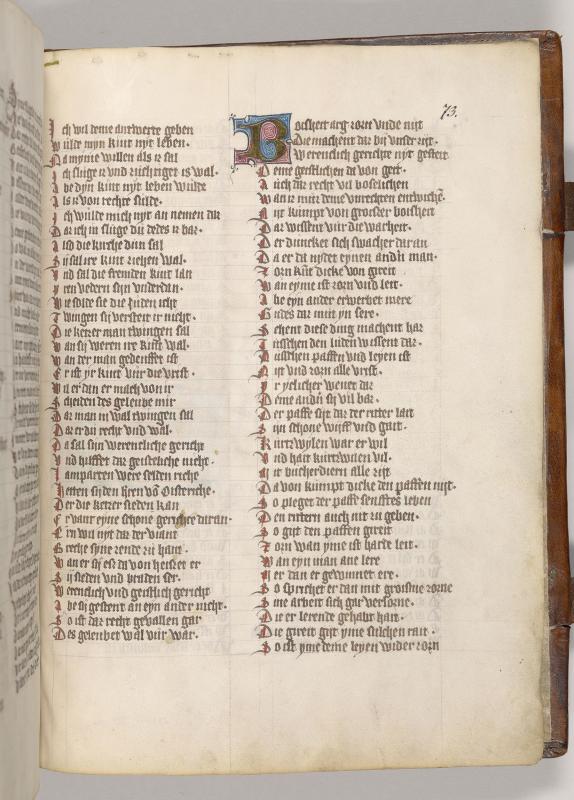 73.
Ich wil deme antwerte geben
Wulde myn kint nyt leben
Na myme willen als iz sal
Ich sluge iz vnd zuchtiget is wal·
Abe dyn kint nyt leben wulde
Als iz von rechte sulde·
Ich wulde mich nyt an nemen daz
Daz ich in sluge du dedes iz baz·
Also die kirche dun sal
Sij sal ire kint ziehen wal·
Vnd sal die fremden kint lan
Yren vedern sijn vnderdan·
Wie solde sie die Juden icht
Twingen sij versteit ir nicht·
Die ketzer man twingen sal
Wan sij weren ire kint wal·
Wan der man gedeuffet ist
Er ist yr kint vur die vrist·
Wil er dan er mach von ir
Scheiden des geleubet mir
Daz man in wal twingen sal
Daz er du recht vnd wal·
Da sal sijn werentliche gericht
Vnd hilffet daz geistliche nicht·
Lamparten were selden riche
Hetten sij den hren võ Oisteriche·
Der die ketzer sieden kan
Er vant eyne schone gerichte daran·
Er in wil nyt daz der viant
Breche syne zende zu hant
Wan er sij eß da von heisset er
Sij sieden vnd braden ser·
Werenclich vnd geistlich gericht
Abe ez gestent an eyn ander nicht·
So ist daz recht gevallen gar
Des geleubet wal vur war·
Boisheit arg zorn vnde nijt
Die machent daz bij vnser zijt·
Werentlich gerichte nyt gesteit
Deme geistlichen da von geit·
Auch daz recht vil boselichen
Wan iz muz deme vnrechten entwichē·
Nyt kumpt von groisser boisheit
Daz wissent vur die warheit·
Der duncket sich swacher daran
Da er da nydet eynen andn man·
Zorn kumt dicke von gireit
Wan eyme ist zorn vnd leit·
Abe eyn ander erwerbet mere
Gudes daz muit yn sere·
Sehent diese ding machent haz
Zusschen den luden wissent daz·
Zusschen paffen vnd leyen ist
Nijt vnd zorn alle vrist·
Yr yelicher wenet daz
Deme andn sij vil baz·
Der paffe siht daz der ritter hait
Sijn schone wijff vnd gait·
Kurtz wylen war er wil
Vnd hait kurtzwilen vil·
Mit bucherdiern alle zijt
Da von kumpt dicke den paffen nijt·
So pleget der paffe senfftes leben
Den rittern auch nit zu geben·
So git den paffen gireit
Zorn wan yme ist harde leit·
Wan eyn man ane lere
Mer dan er gewinnet ere·
So sprichet er dan mit groisme zorne
Sine arbeit sich gar verlorne·
Die er lerende gehabt hait·
Die gireit gijt yme sulchen rait·
So ist yme deme leyen wider zorn